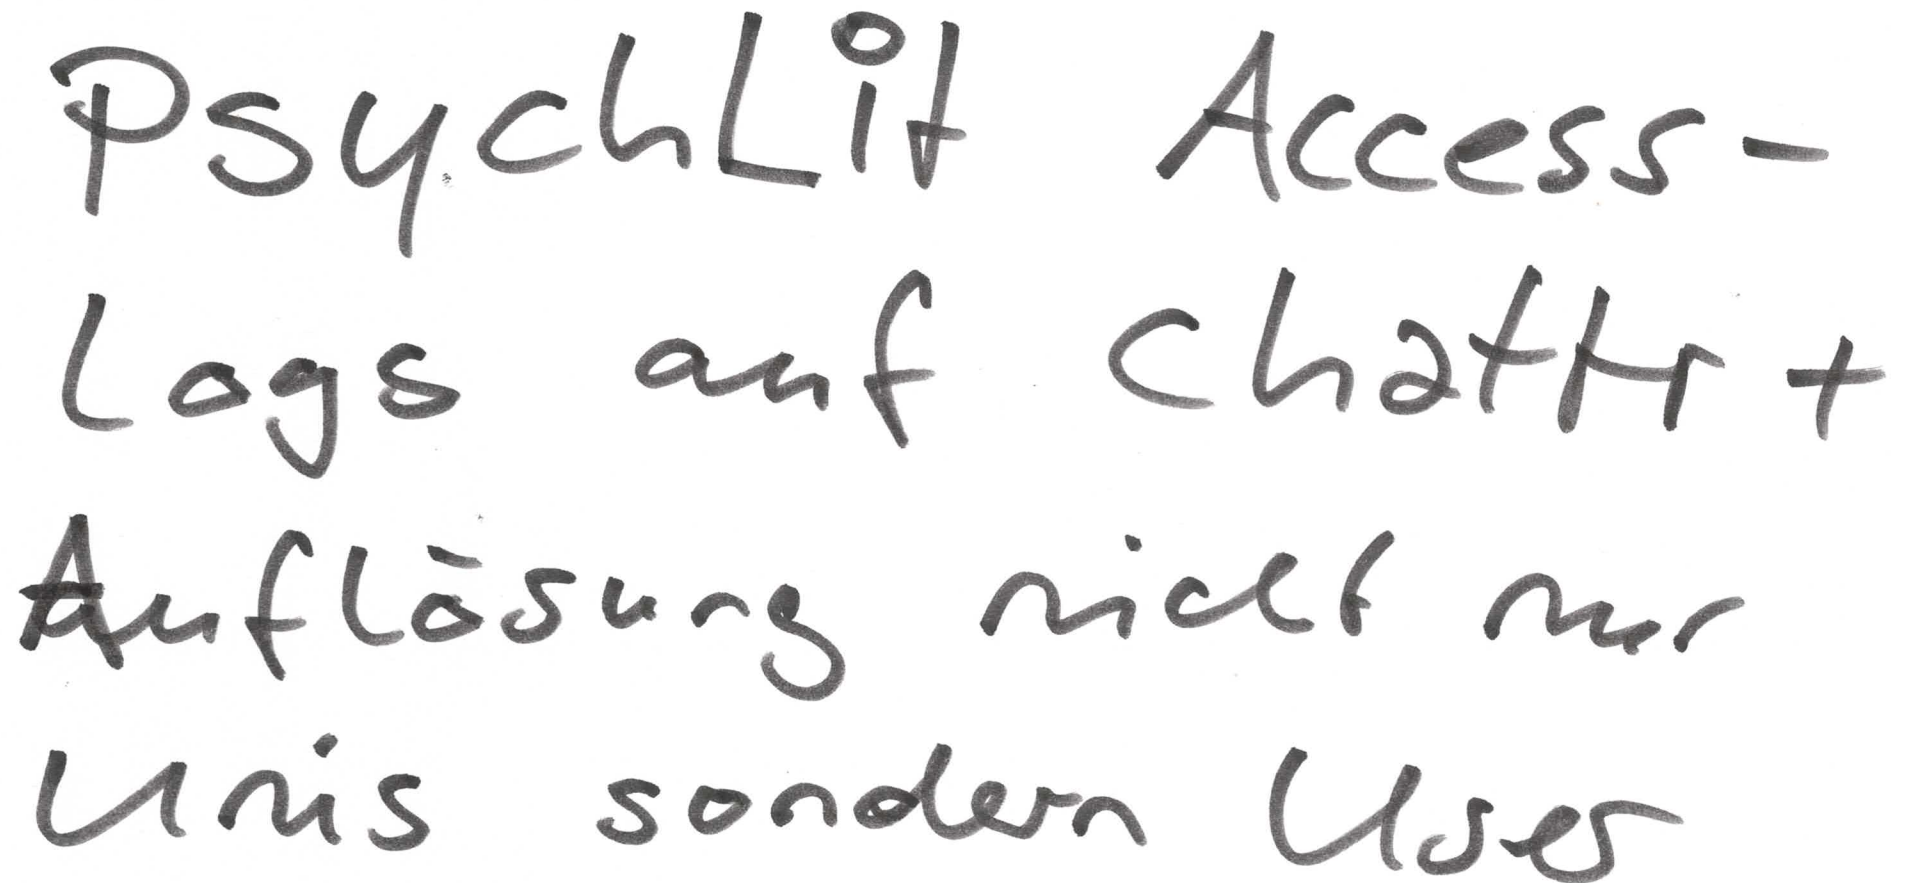 PsychLit Access-
Logs auf Chattr +
Auflösung nicht nur
Unis sondern User